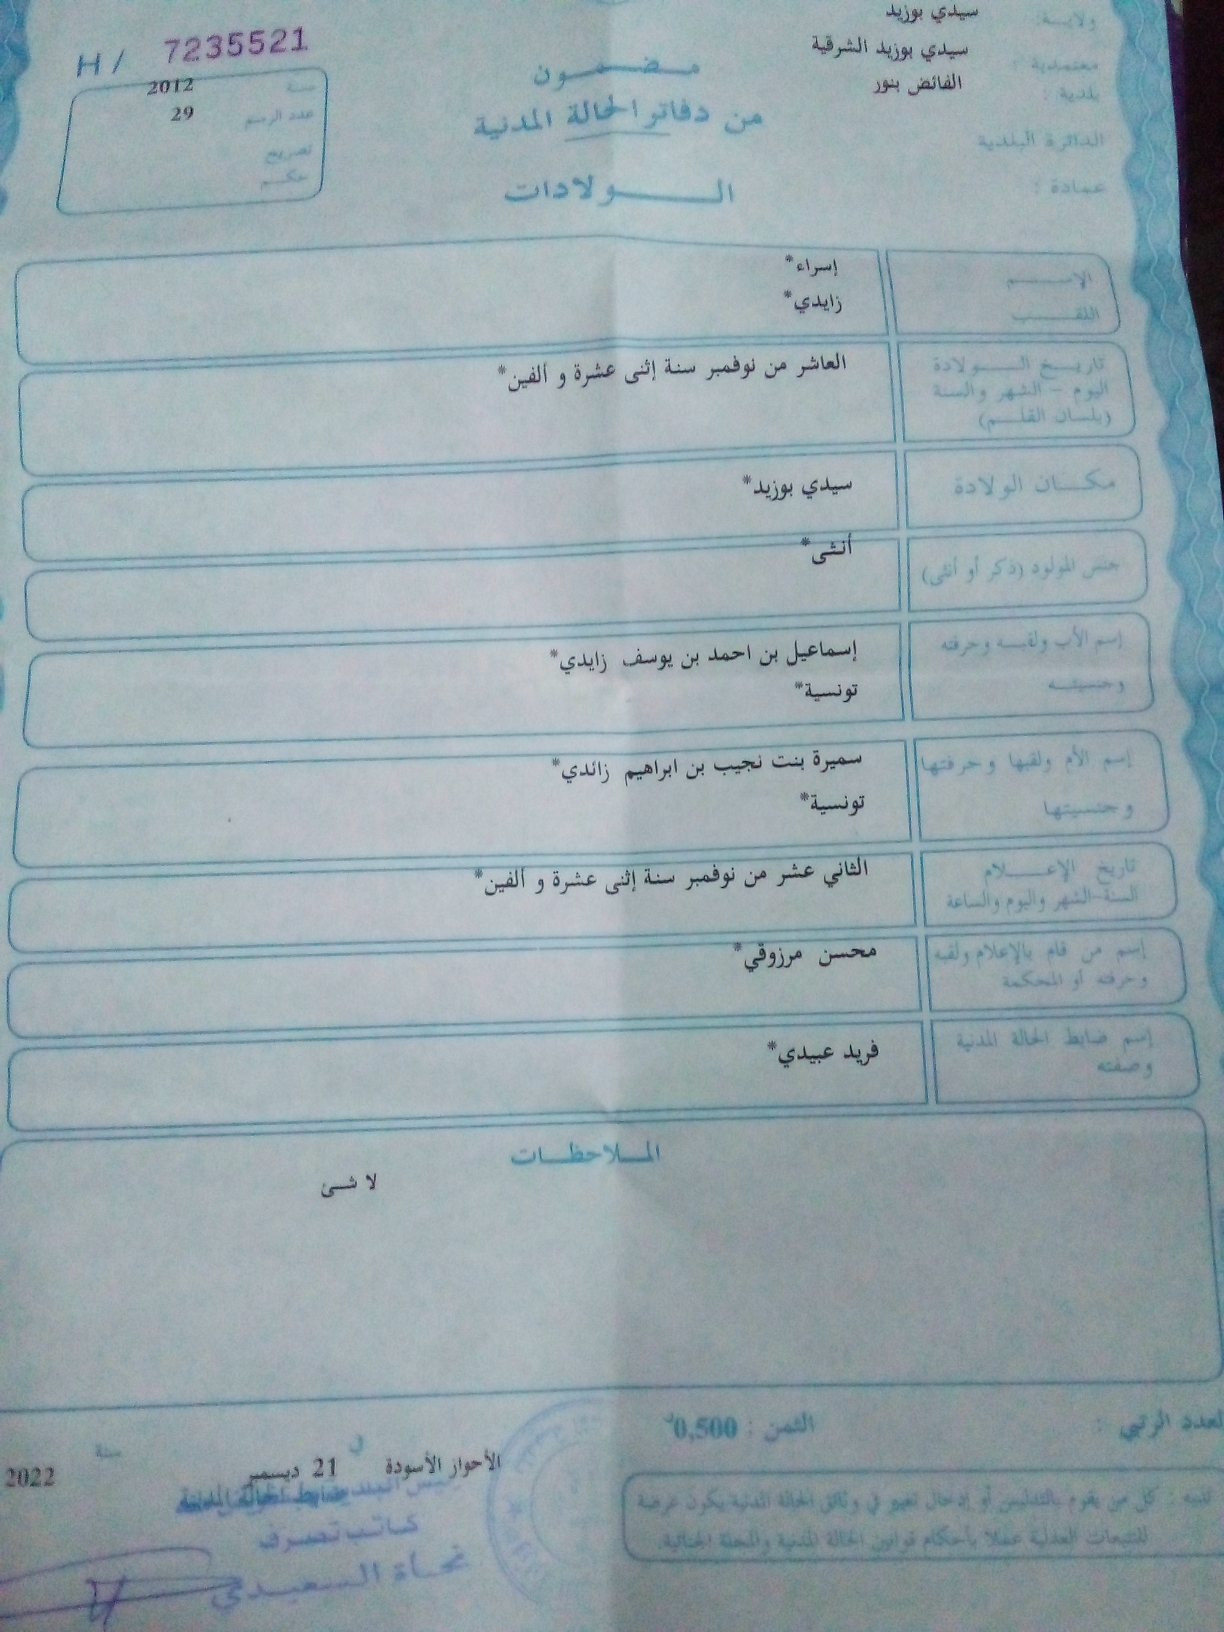 ولايـــة: سيدي بوزيد
معتمدية : سيدي بوزيد الشرقية
بلدية : الفائض بنور
الدائرة البلدية
عمادة :
H/ 7235521
سنة 2012
عدد الرسم 29
تصريح
حكـــم
مـــضـــمـــون
من دفاتر الحالة المدنية
الـــــولادات
الإســـــم إسراء*
اللقـــــب زايدي*
تاريـــخ الـــــولادة
اليوم - الشهر والسنة
(بلســان القلـــم)
العاشر من نوفمبر سنة إثنى عشرة و ألفين*
مكـــان الولادة سيدي بوزيد*
جنس المولود (ذكر أو أنثى) أنثى*
إسم الأب ولقبـــه وحرفته إسماعيل بن احمد بن يوسف زايدي*
وجنسيتـــه تونسية*
إسم الأم ولقبها وحرفتها سميرة بنت نجيب بن ابراهيم زائدي*
وجنسيتها تونسية*
تاريخ الإعـــلام
السنة-الشهر واليوم والساعة
الثاني عشر من نوفمبر سنة إثنى عشرة و ألفين*
إسم من قام بالإعلام ولقبه
وحرفته أو المحكمة
محسن مرزوقي*
إسم ضابط الحالة المدنية
وصفته
فريد عبيدي*
المـــلاحظـــات
لا شئ
العدد الرتبي :
الثمن : 0,500د
تنبيه : كل من يقوم بالتدليس أو إدخال تغيير في وثائق الحالة المدنية يكون عرضة
للتتبعات العدلية عملا بأحكام قوانين الحالة المدنية والمجلة الجنائية.
الأحواز الأسودة في 21 ديسمبر سنة 2022
ضابط الحالة المدنية
كاتب تصرف
نجاة السعيدي